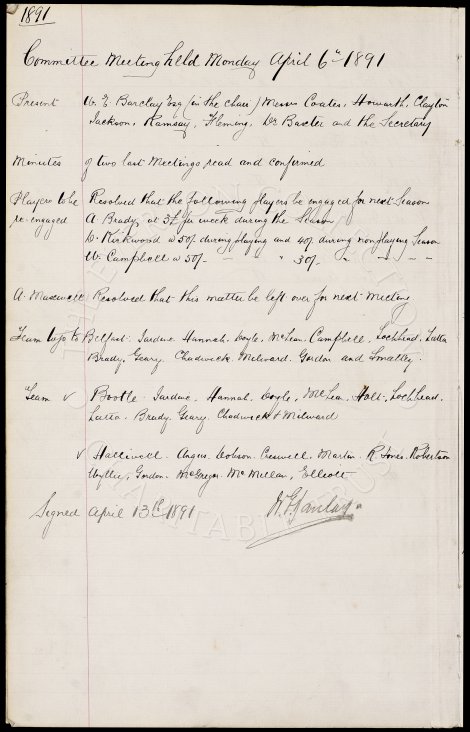 1891
Committee Meeting held Monday April 6th 1891
Present W. E. Barclay Esq (in the chair) Messrs Coates, Howarth, Clayton
Jackson, Ramsay, Fleming, Dr Baxter and the Secretary
Minutes of two last Meetings read and confirmed
Players to be Resolved that the following players be engaged for next Season
re-engaged A Brady at 3£ per week during the Season
D. Kirkwood @ 50/- during playing and 40/- during nonplaying Season
W. Campbell @ 50/- " " 30/- " " "
A. Maxwell Resolved that this matter be left over for next Meeting
Team to go to Belfast. Jardine Hannah, Doyle, McLean, Campbell, Lochhead, Latta
Brady, Geary, Chadwick, Milward. Gordon and Smalley.
Team v Bootle. Jardine. Hannah. Doyle. McLean. Holt. Lochhead.
Latta. Brady. Geary. Chadwick & Milward
v Halliwell. Angus. Dobson. Creswell. Martin. R Jones. Robertson
Wyllie, Gordon. McGregor. McMillan, Elliott
Signed April 13th 1891